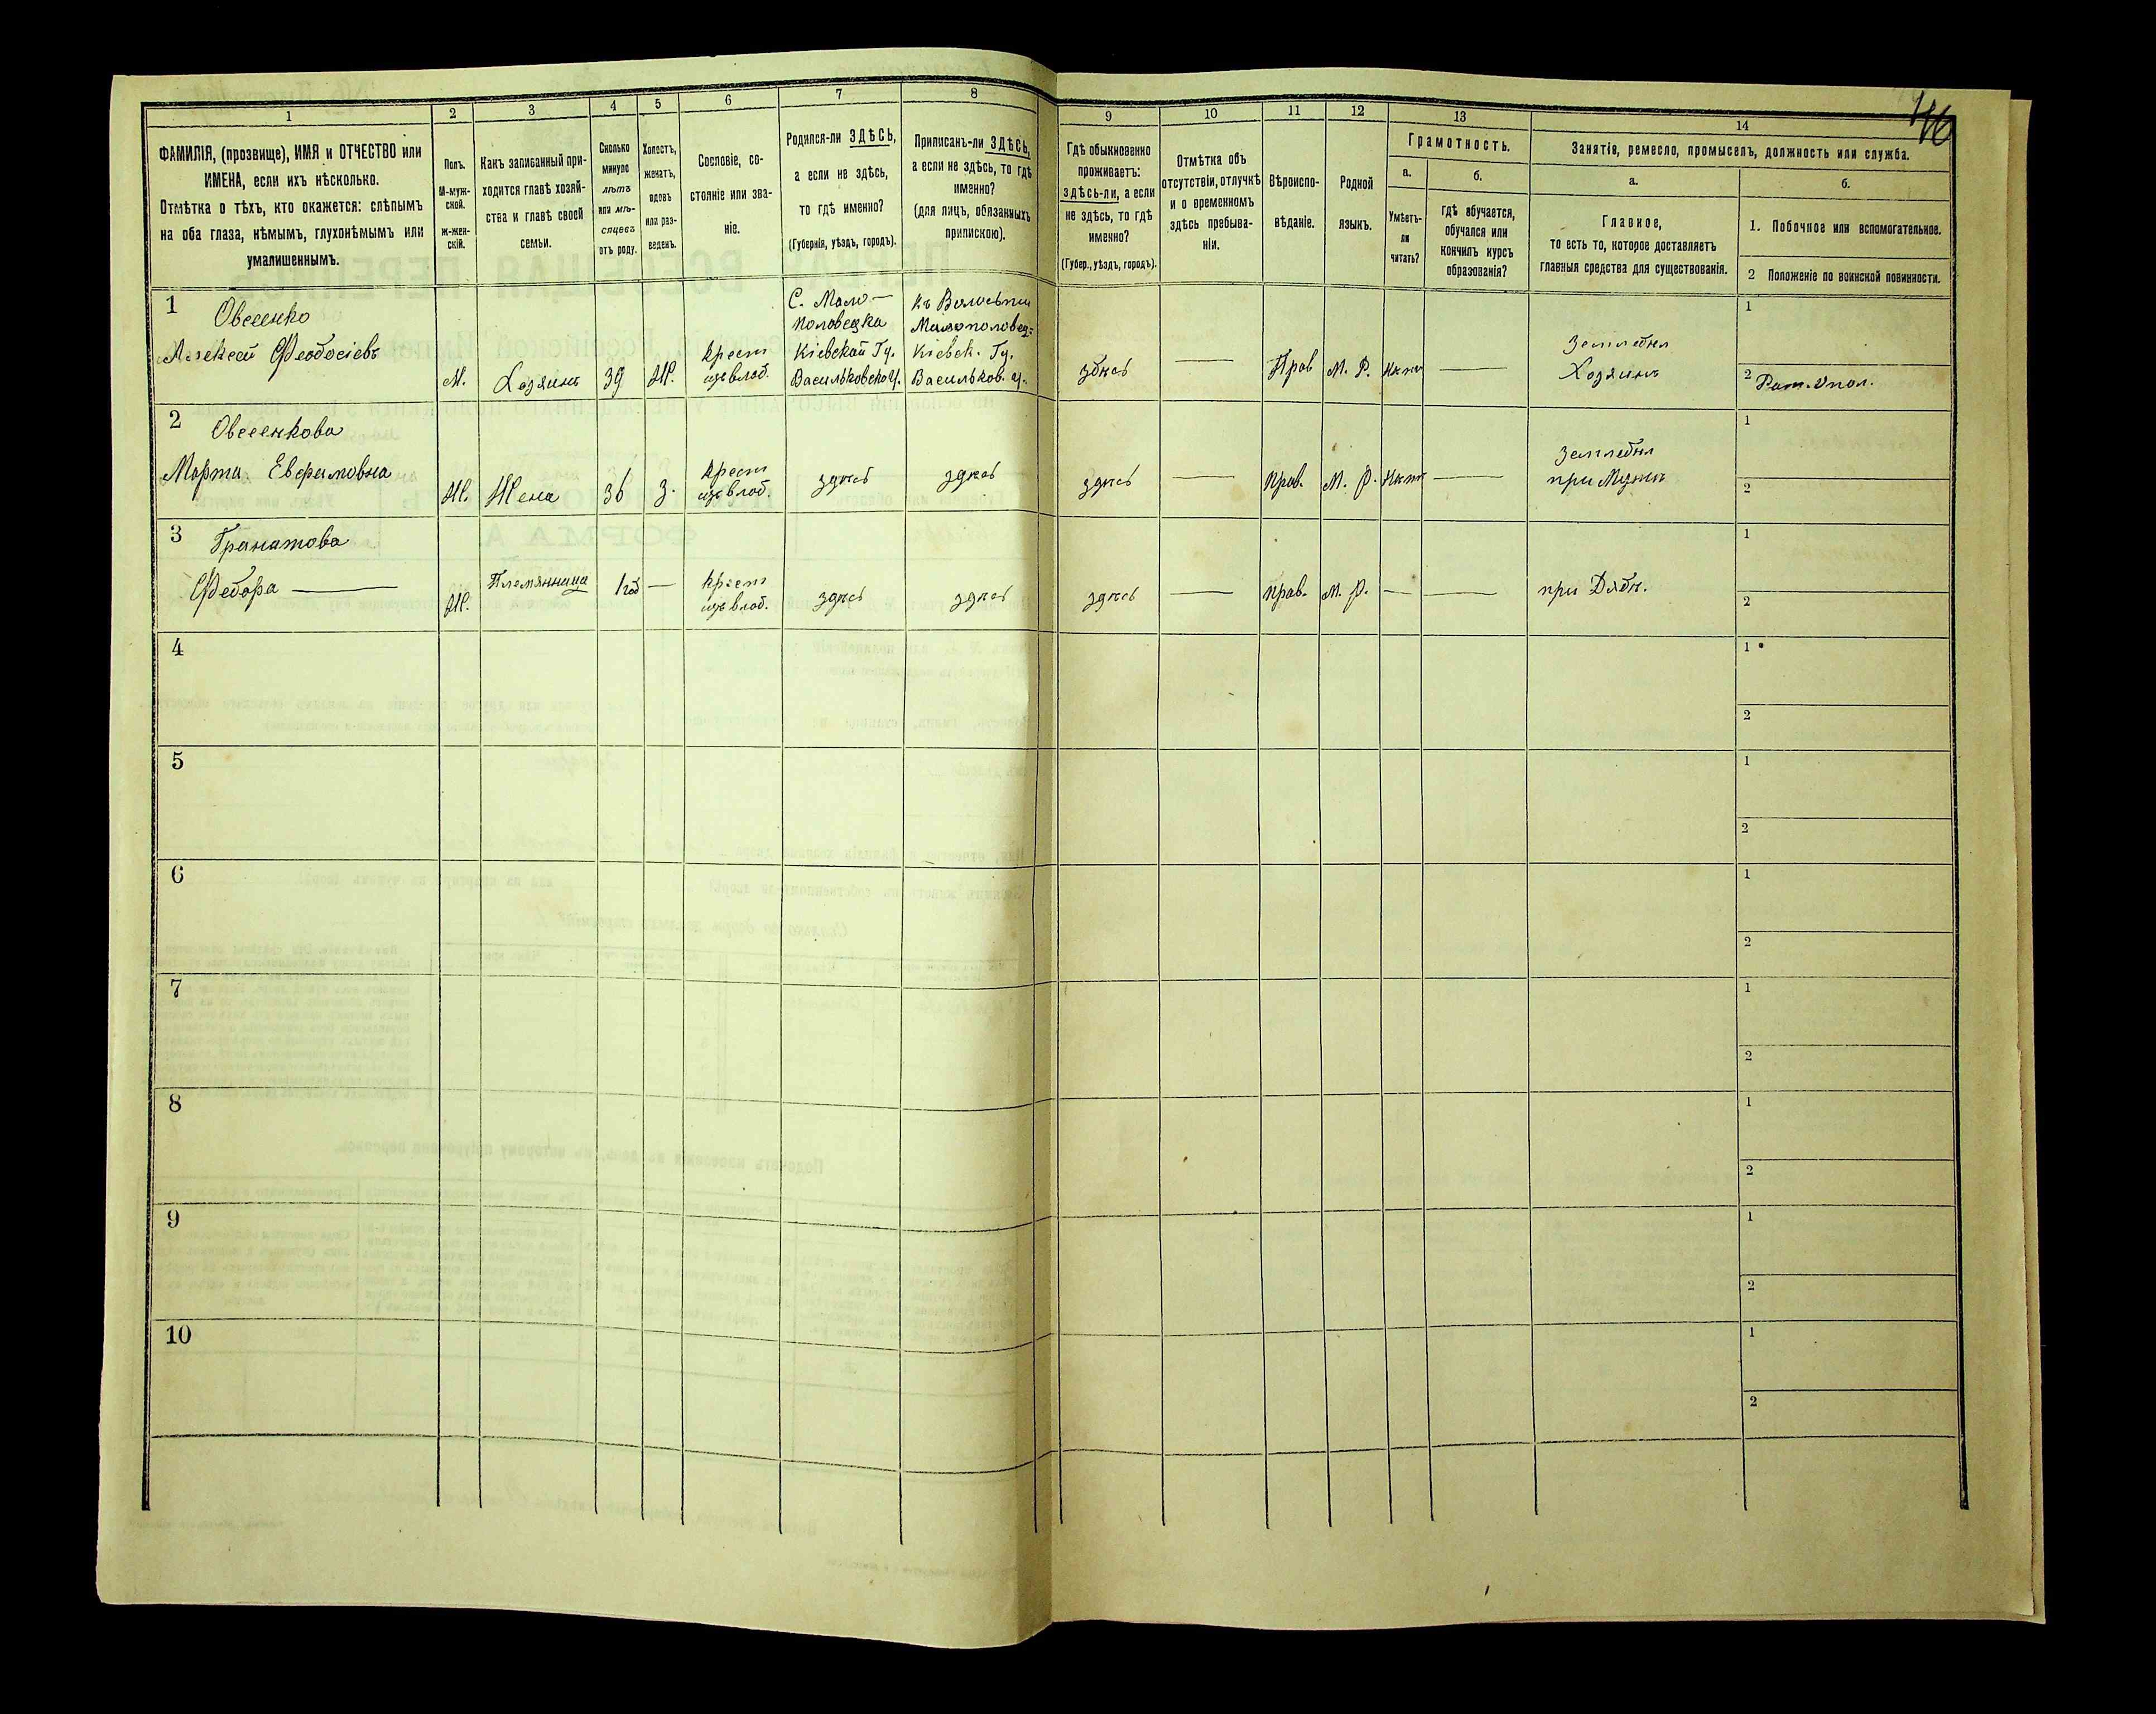 46
1
2
3
4
5
6
7
8
9
10
11
12
13
14
ФАМИЛІЯ, (прозвище), ИМЯ и ОТЧЕСТВО или
ИМЕНА, если ихъ нѣсколько.
Отмѣтка о тѣхъ, кто окажется: слѣпымъ
на оба глаза, нѣмымъ, глухонѣмымъ или
умалишеннымъ.
Полъ.
М-муж-
ской.
ж-жен-
скій.
Какъ записанный при-
ходится главѣ хозяй-
ства и главѣ своей
семьи.
Сколько
минуло
лѣтъ
или мѣ-
сяцевъ
отъ роду.
Холостъ,
женатъ,
вдовъ
или раз-
веденъ.
Сословіе, со-
стояніе или зва-
ніе.
Родился-ли ЗДѢСЬ,
а если не здѣсь,
то гдѣ именно?
(Губернія, уѣздъ, городъ).
Приписанъ-ли ЗДѢСЬ,
а если не здѣсь, то гдѣ
именно?
(для лицъ, обязанныхъ
припискою).
Гдѣ обыкновенно
проживаетъ:
здѣсь-ли, а если
не здѣсь, то гдѣ
именно?
(Губер., уѣздъ, городъ).
Отмѣтка объ
отсутствіи, отлучкѣ
и о временномъ
здѣсь пребыва-
ніи.
Вѣроиспо-
вѣданіе.
Родной
языкъ.
Грамотность.
а.
Умѣетъ-
ли
читать?
б.
гдѣ обучается,
обучался или
кончилъ курсъ
образованія?
Занятія, ремесло, промыселъ, должность или служба.
а.
Главное,
то есть то, которое доставляетъ
главныя средства для существованія.
б.
1. Побочное или вспомогательное.
2 Положеніе по воинской повинности.
1
Овсеенко
Алексей Феодосіевъ
М.
Хозяинъ
39
Ж.
крест
изъ влад.
С. Мало-
Половецка
Кіевской Гу.
Васильковско у.
Къ Волости
Малополовец-
Кіевск. Гу.
Васильков. у.
здѣсь
—
Прав
М. Р.
—
Хозяинъ
1
2
2
Овсеенкова
Марта Евфимовна
Ж.
Жена
36
З.
крест
изъ влад.
здѣсь
здѣсь
здѣсь
—
прав.
М. Р.
—
при Мужѣ
1
2
3
Гранатова
Федора —
Ж.
Племянница
1 год
—
крест
изъ влад.
здѣсь
здѣсь
здѣсь
—
прав.
М. Р.
—
—
при Дядѣ.
1
2
4
1
2
5
1
2
6
1
2
7
1
2
8
1
2
9
1
2
10
1
2